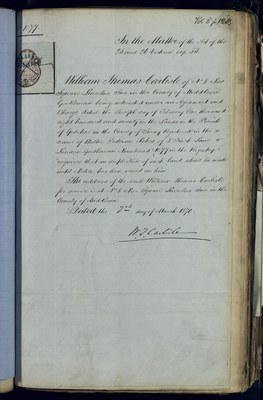 1877
In the Matter of the Act of the
25 and 26 Victoria cap 53.
William Thomas Carlisle of No 8 New
Square Lincolns Inn in the County of Middlesex
Gentleman being interested under an Agreement and
Charge dated the twelfth day of February One thousand
eight hundred and seventy in the Lands in the Parish
of in the County of Surrey Registered in the
name of Walter of
London Gentleman Numbered 1877 in the Registry
requires that no disposition of such Land shall be made
until Notice has been served on him
The address of the said William Thomas Carlisle
for service is at No 8 New Square Lincolns Inn in the
County of Middlesex
Dated the 2nd day of March 1870
W. T. Carlisle